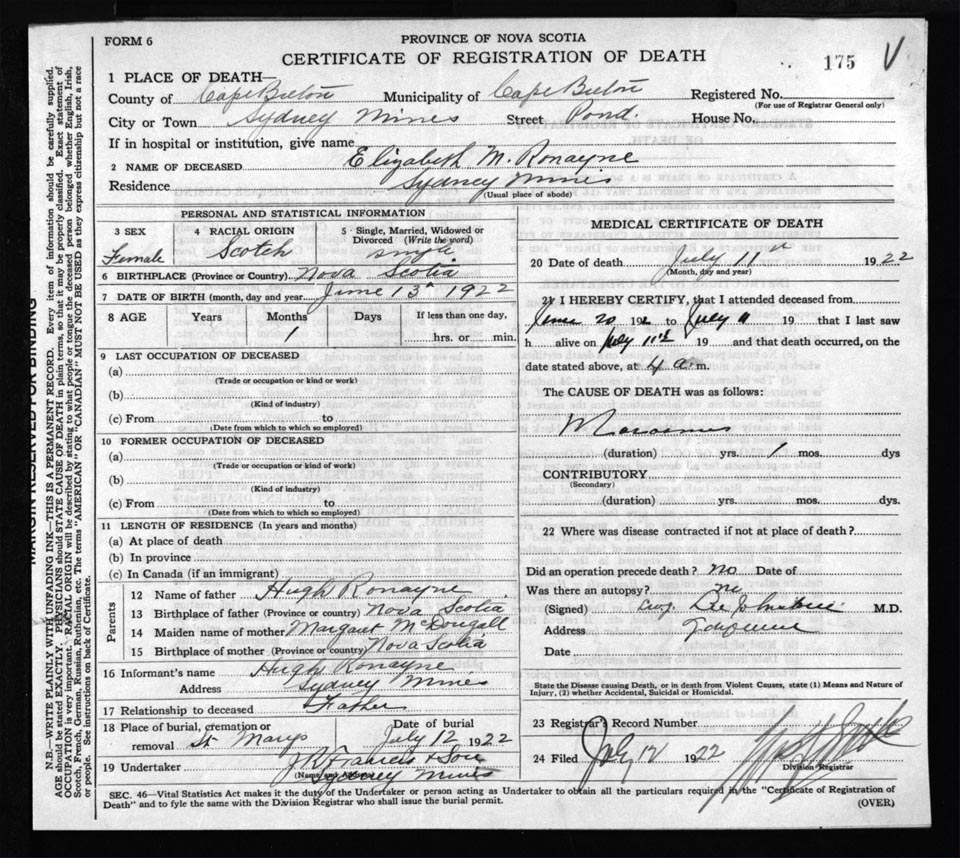 FORM 6
PROVINCE OF NOVA SCOTIA
CERTIFICATE OF REGISTRATION OF DEATH
175 V
1 PLACE OF DEATH—
County of Cape Breton Municipality of Cape Breton Registered No.
(For use of Registrar General only)
City or Town Sydney Mines Street Pond. House No.
If in hospital or institution, give name
2 NAME OF DECEASED Elizabeth M. Ronayne
Residence Sydney Mines
(Usual place of abode)
PERSONAL AND STATISTICAL INFORMATION
3 SEX 4 RACIAL ORIGIN 5 Single, Married, Widowed or
Divorced (Write the word)
Female Scotch single
6 BIRTHPLACE (Province or Country) Nova Scotia
7 DATE OF BIRTH (month, day and year) June 13 1922
8 AGE Years Months Days If less than one day,
1 hrs. or min.
9 LAST OCCUPATION OF DECEASED
(a)
(Trade or occupation or kind or work)
(b)
(Kind of industry)
(c) From to
(Date from which to which so employed)
10 FORMER OCCUPATION OF DECEASED
(a)
(Trade or occupation or kind of work)
(b)
(Kind of industry)
(c) From to
(Date from which to which so employed)
11 LENGTH OF RESIDENCE (In years and months)
(a) At place of death
(b) In province
(c) In Canada (if an immigrant)
Parents
12 Name of father Hugh Ronayne
13 Birthplace of father (Province or country) Nova Scotia
14 Maiden name of mother Margaret McDougall
15 Birthplace of mother (Province or country) Nova Scotia
16 Informant's name Hugh Ronayne
Address Sydney Mines
17 Relationship to deceased Father
18 Place of burial, cremation or Date of burial
removal St Marys July 12 1922
19 Undertaker J R Francis & Son
(Name and Address) Sydney Mines
MEDICAL CERTIFICATE OF DEATH
20 Date of death July 11 1922
(Month, day and year)
21 I HEREBY CERTIFY, that I attended deceased from
June 20 192 to July 11 19 that I last saw
h alive on July 11th 19 and that death occurred, on the
date stated above, at 4 a.m.
The CAUSE OF DEATH was as follows:
Marasmus
(duration) yrs. 1 mos. dys
CONTRIBUTORY
(Secondary)
(duration) yrs. mos. dys.
22 Where was disease contracted if not at place of death?
Did an operation precede death? no Date of
Was there an autopsy? no
(Signed) M.D.
Address
Date
State the Disease causing Death, or in death from Violent Causes, state (1) Means and Nature of
Injury, (2) whether Accidental, Suicidal or Homicidal.
23 Registrar's Record Number
24 Filed July 12 1922
Division Registrar
SEC. 46—Vital Statistics Act makes it the duty of the Undertaker or person acting as Undertaker to obtain all the particulars required in the "Certificate of Registration of
Death" and to fyle the same with the Division Registrar who shall issue the burial permit. (OVER)
MARGIN RESERVED FOR BINDING
N.B.—WRITE PLAINLY WITH UNFADING INK—THIS IS A PERMANENT RECORD. Every item of information should be carefully supplied.
AGE should be stated EXACTLY. PHYSICIANS should STATE CAUSE OF DEATH in plain terms, so that it may be properly classified. Exact statement of
OCCUPATION is very important. RACIAL ORIGIN will be described by stating to what people or tongue the deceased person belonged whether English, Irish,
Scotch, French, German, Russian, Ruthenian, etc. The terms "AMERICAN" OR "CANADIAN" MUST NOT BE USED as they express citizenship but not a race
or people. See instructions on back of Certificate.